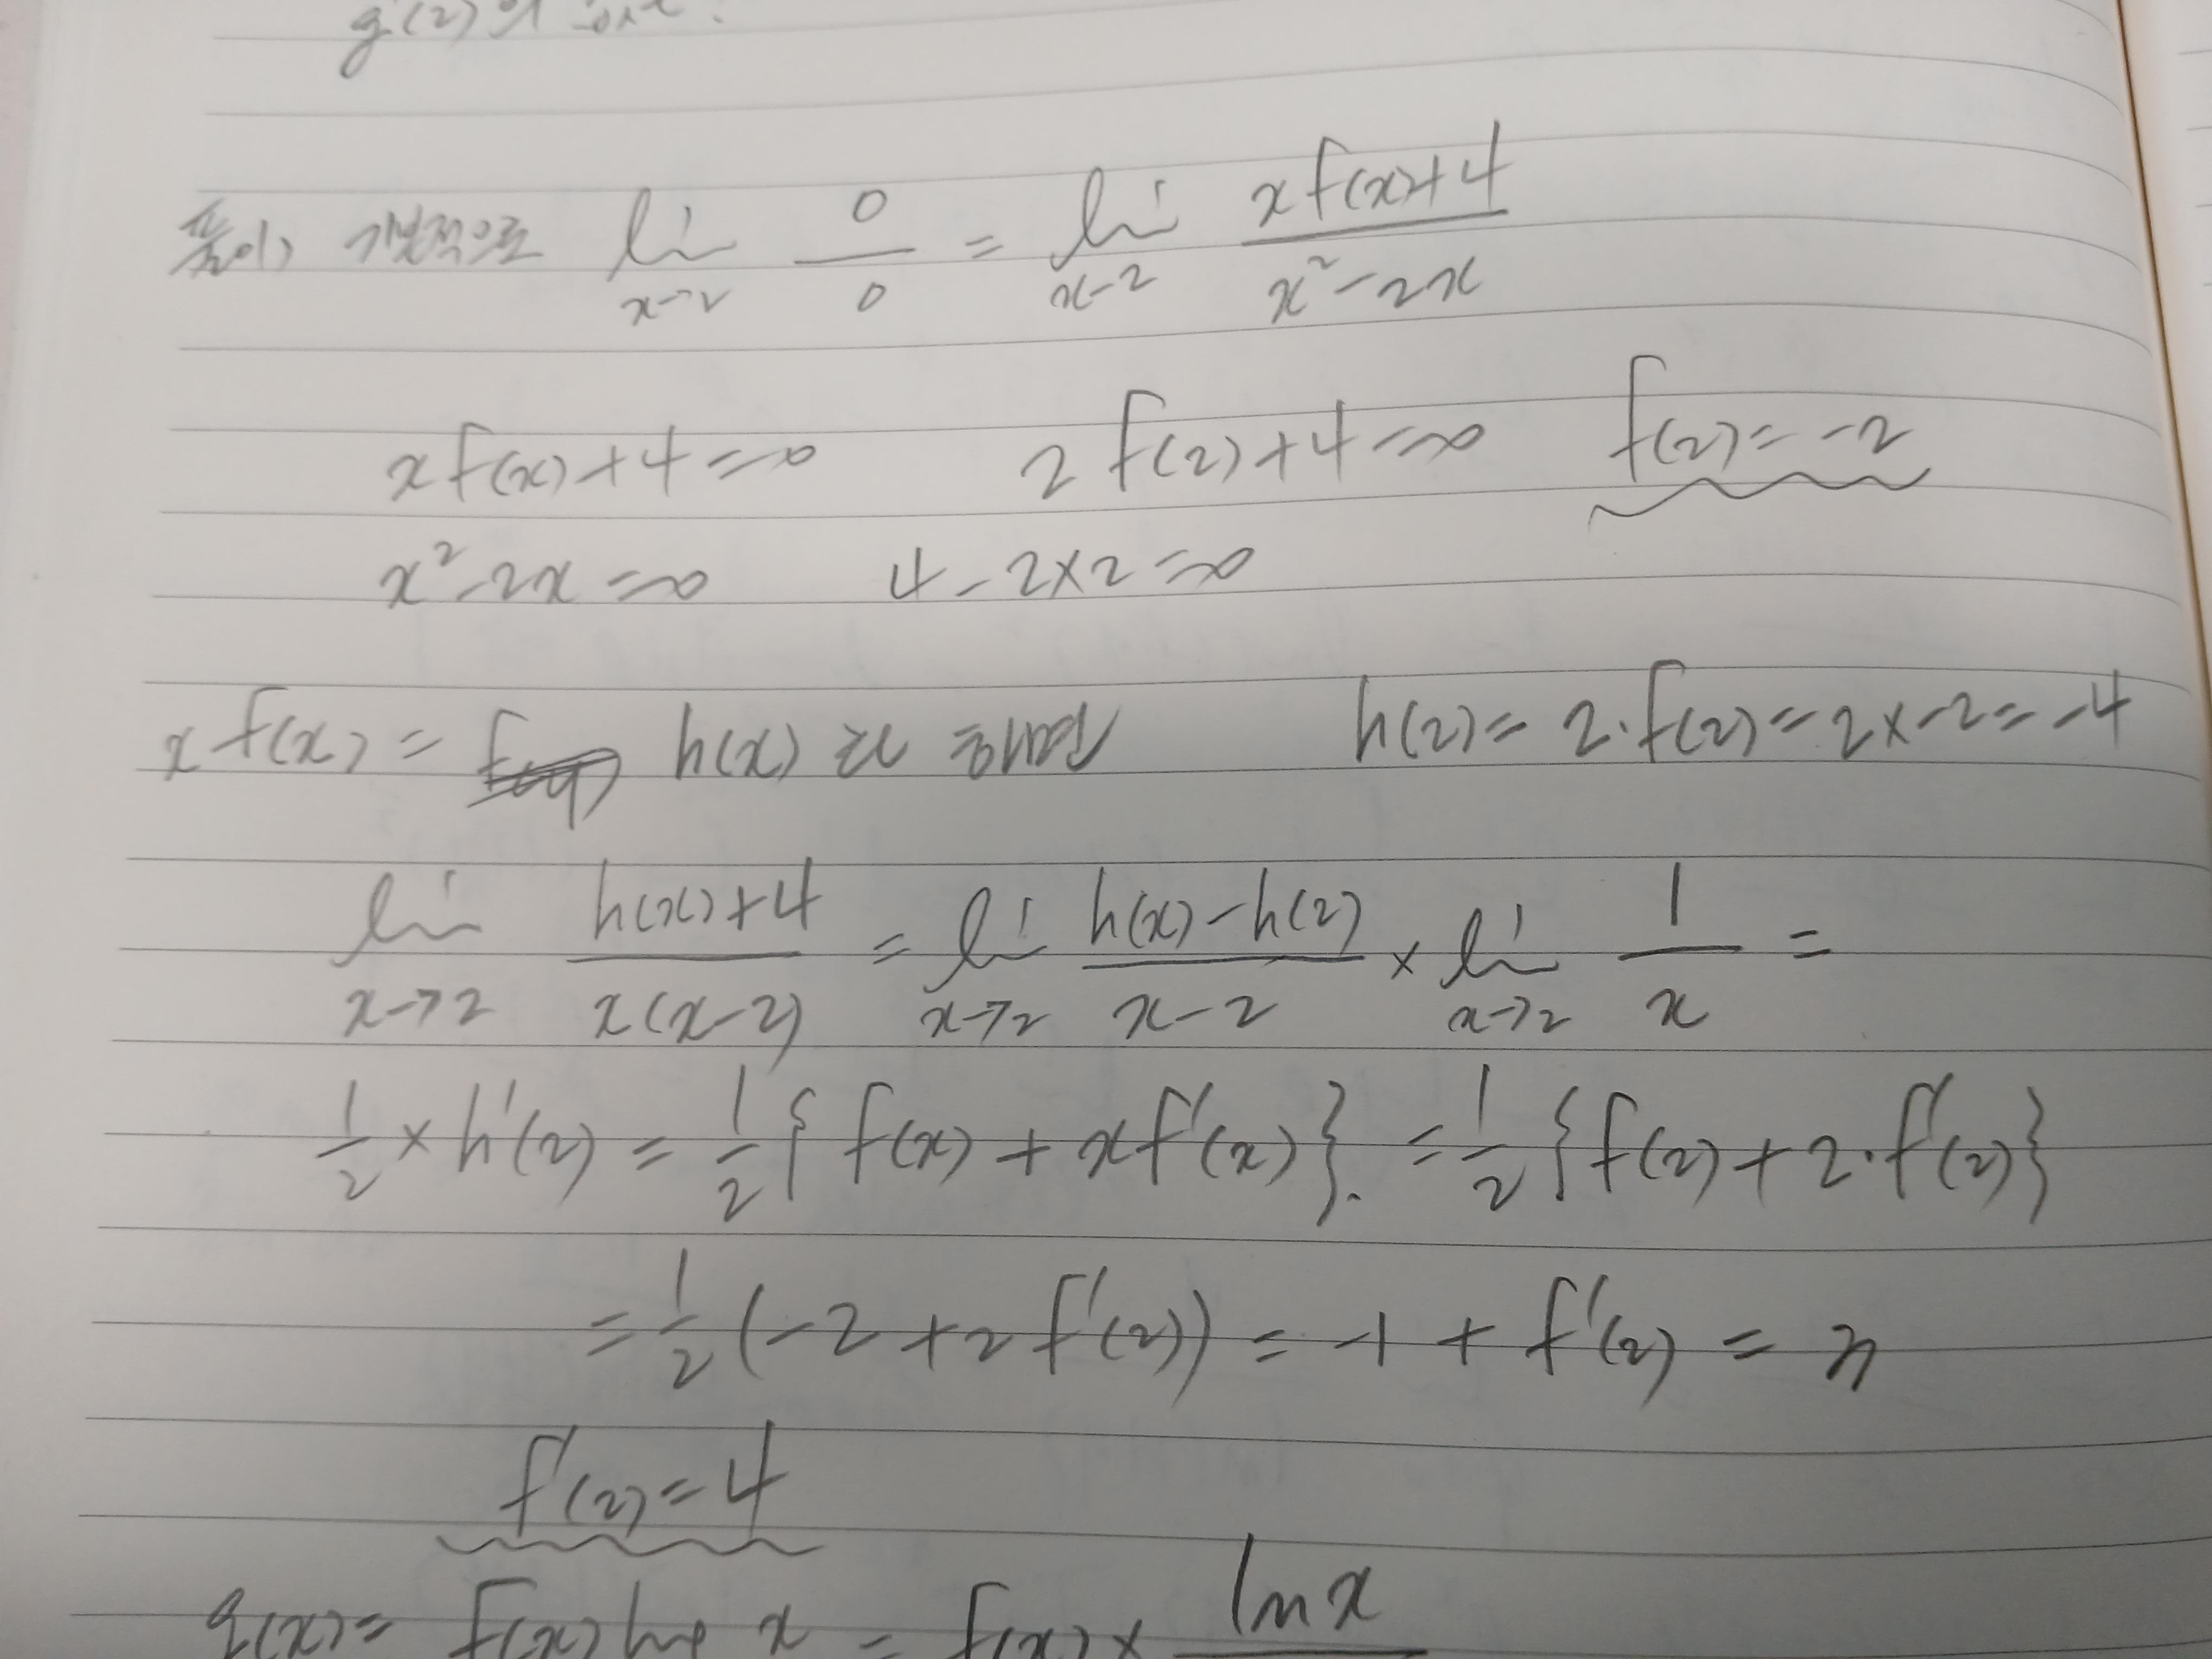 g'(2)의
풀이) 기본적으로 lim x→2 0/0 = lim x-2 (xf(x)+4)/(x²-2x)
xf(x)+4=0 2f(2)+4=0 f(2)=-2
x²-2x=0 4-2×2=0
xf(x)= h(x)라 하면 h(2)=2·f(2)=2×-2=-4
lim x→2 (h(x)+4)/(x(x-2)) = lim x→2 (h(x)-h(2))/(x-2) × lim x→2 1/x =
1/2×h'(2)=1/2{f(x)+xf'(x)}. =1/2{f(2)+2·f'(2)}
=1/2(-2+2f'(2))=-1+f'(2)=3
f'(2)=4
g(x)= f(x) x = f(x)× ln x